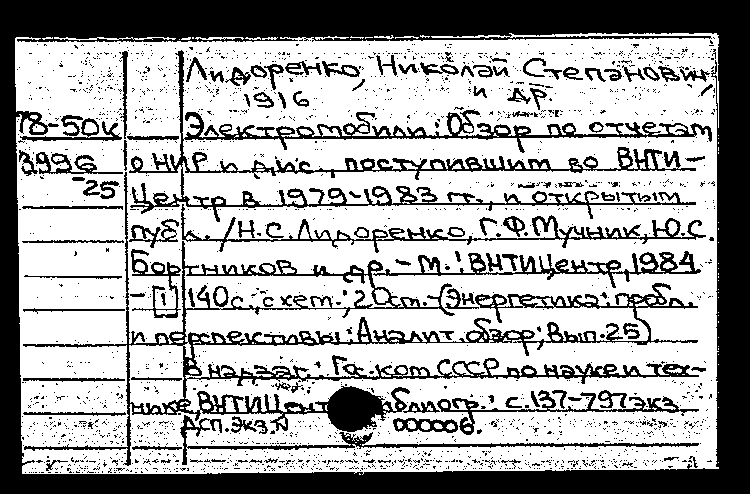 Лидоренко, Николай Степанович,
1916 и др.
78-50к Электромобили: Обзор по отчетам
3996 о НИР и дис., поступившим во ВНТИ-
-25 Центр в 1979-1983 гг., и открытым
публ. /Н.С.Лидоренко, Г.Ф.Мучник, Ю.С.
Бортников и др. - М.: ВНТИЦентр, 1984
- [1] 140 с., схем.; 20 см. - (Энергетика: пробл.
и перспективы: Аналит. обзор; Вып. 25)
В надзаг.: Гос. ком. СССР по науке и тех-
нике, ВНТИЦент : с. 137- 797 экз.
Дсп. Экз. N 000006.